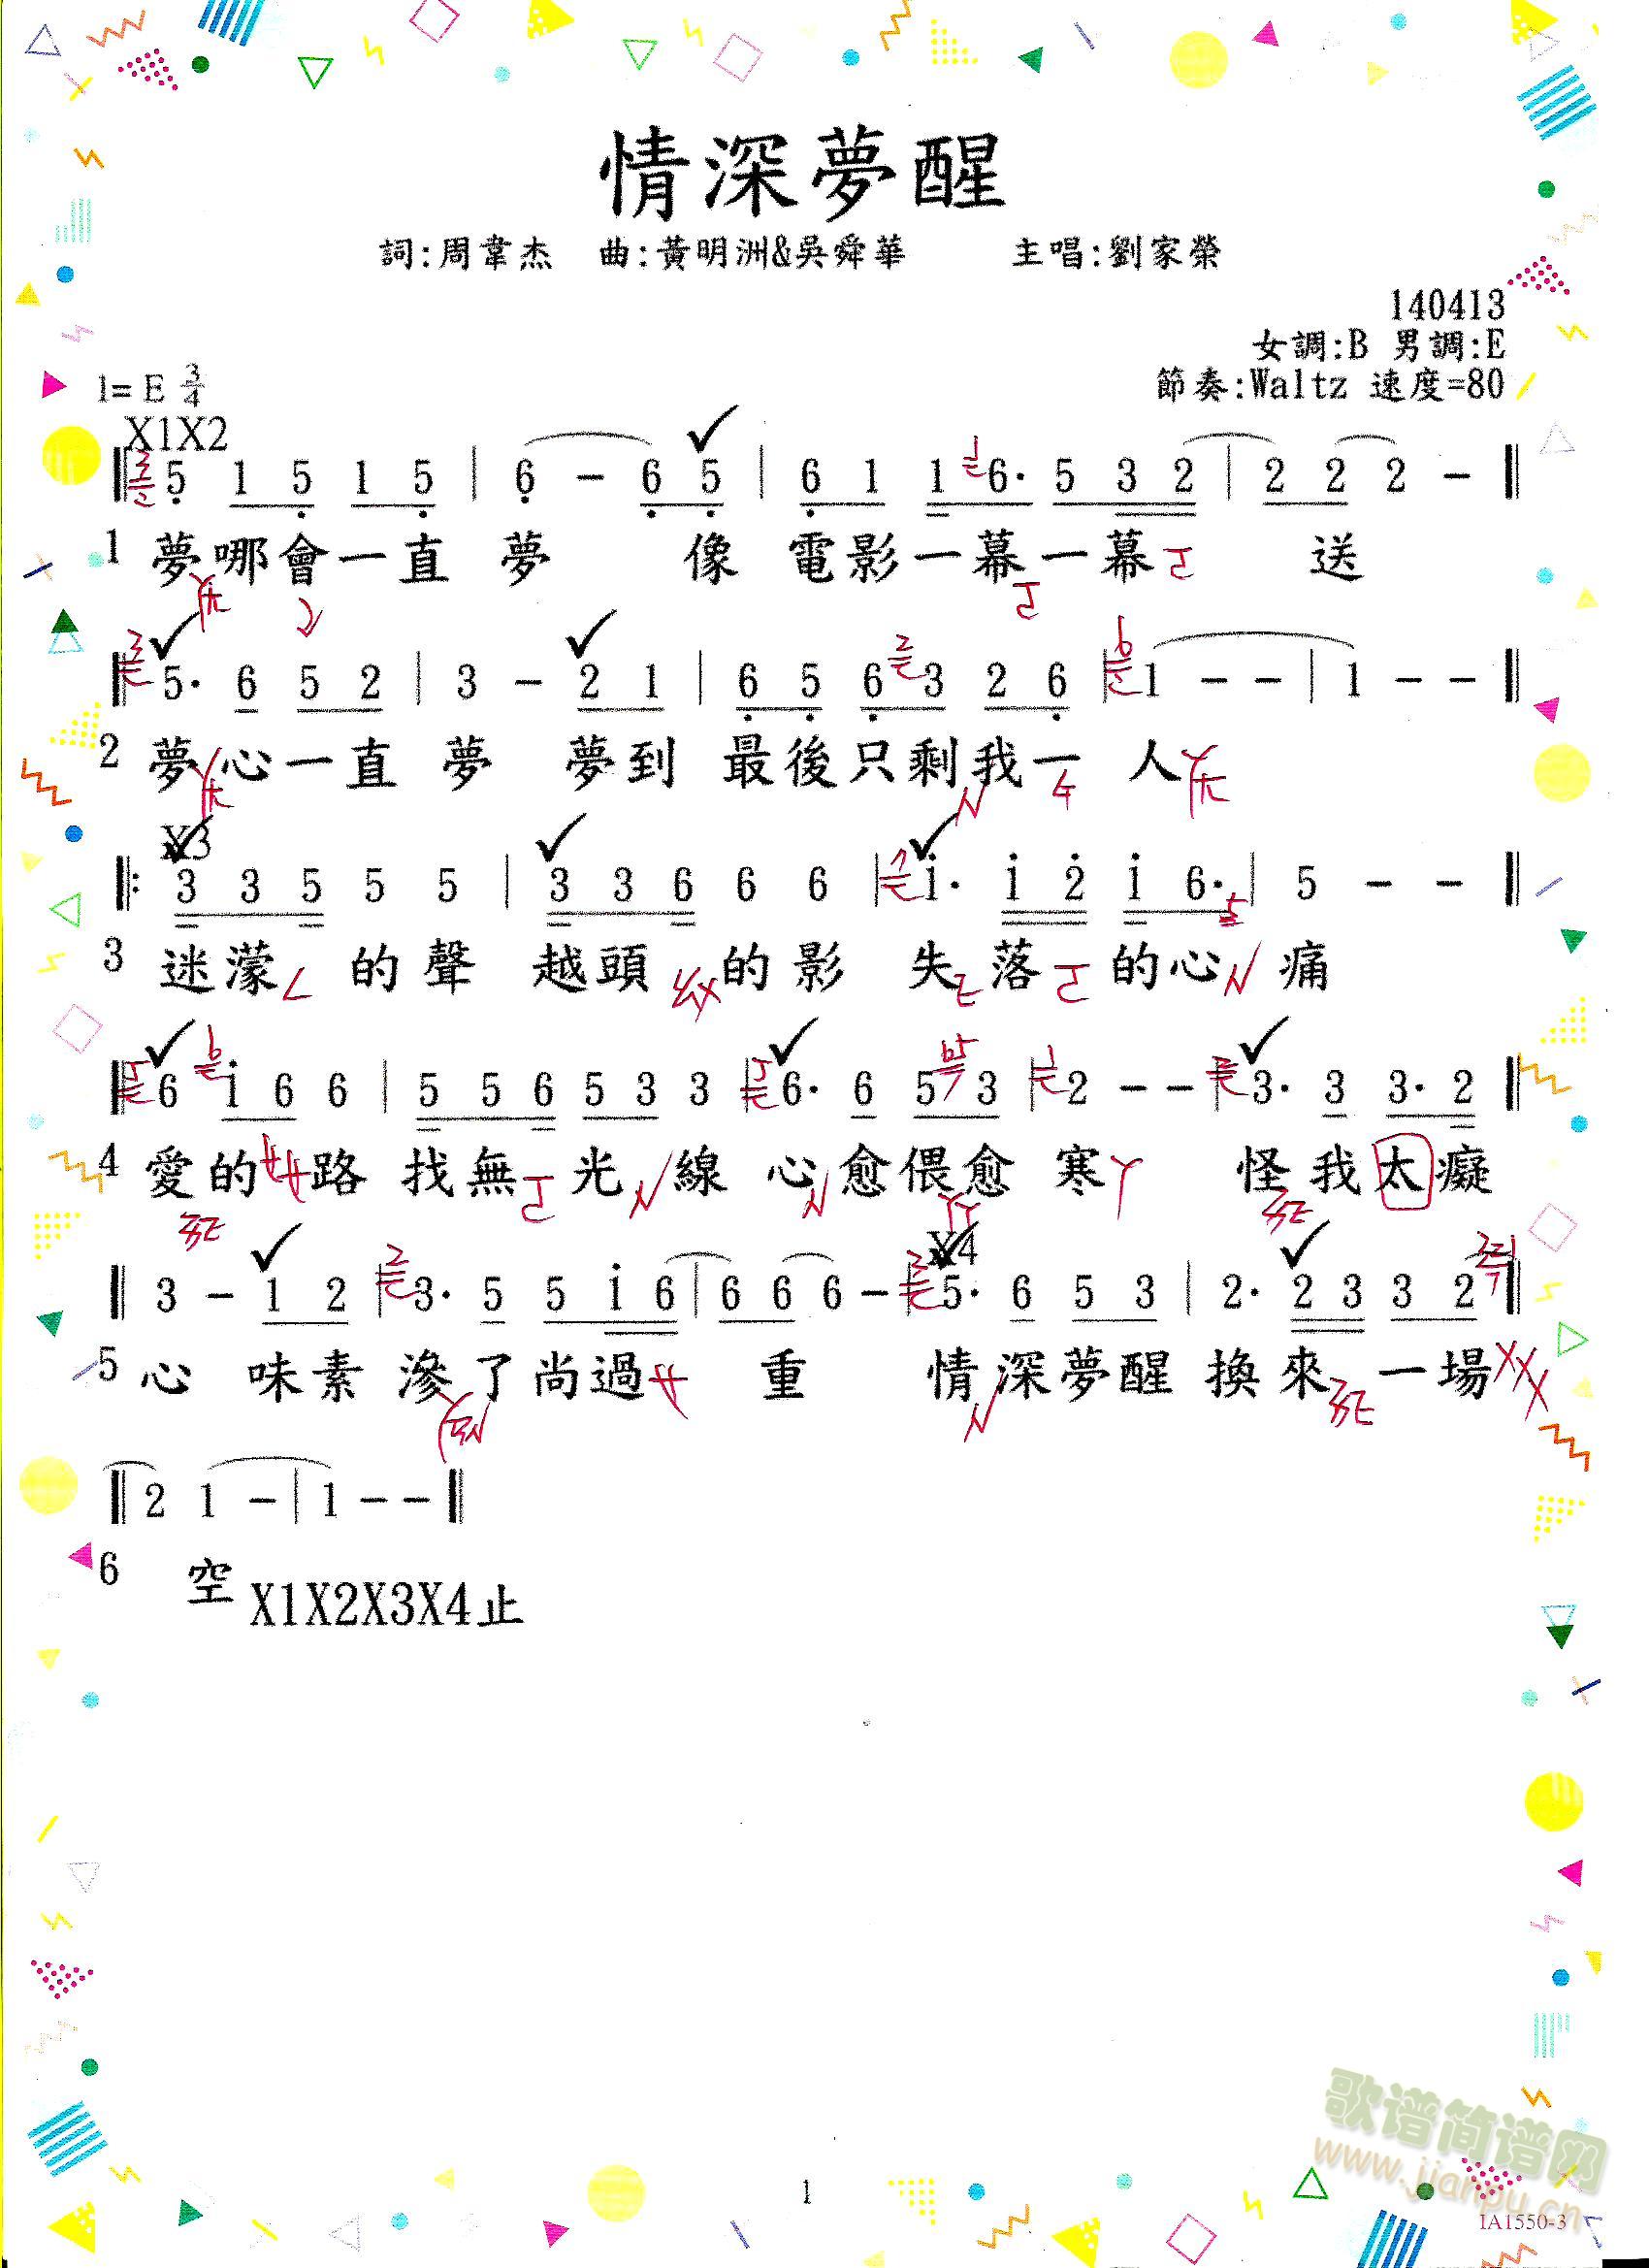 情深夢醒
詞:周韋杰 曲:黃明洲&吳舜華 主唱:劉家榮
140413
女調:B 男調:E
1= E 3/4 節奏:Waltz 速度=80
X1X2
5 1 5 1 5 | 6 - 6 5 | 6 1 1 6· 5 3 2 | 2 2 2 -
1 夢哪會一直 夢 像 電影一幕一幕 送
5· 6 5 2 | 3 - 2 1 | 6 5 6 3 2 6 | 1 - - | 1 - -
2 夢心一直 夢 夢到 最後只剩我一 人
X3
3 3 5 5 5 | 3 3 6 6 6 | 1· 1 2 1 6· | 5 - -
3 迷濛 的聲 越頭 的影 失 落 的心 痛
6 1 6 6 | 5 5 6 5 3 3 | 6· 6 5 3 | 2 - - | 3· 3 3· 2
4 愛的 路 找無 光 線 心愈偎愈 寒 怪我太癡
X4
3 - 1 2 | 3· 5 5 1 6 | 6 6 6 - | 5· 6 5 3 | 2· 2 3 3 2
5 心 味素 滲了尚過 重 情深夢醒 換來 一場
2 1 - | 1 - -
6 空
X1X2X3X4止
1
歌谱简谱网
www.jianpu.cn
IA1550-3